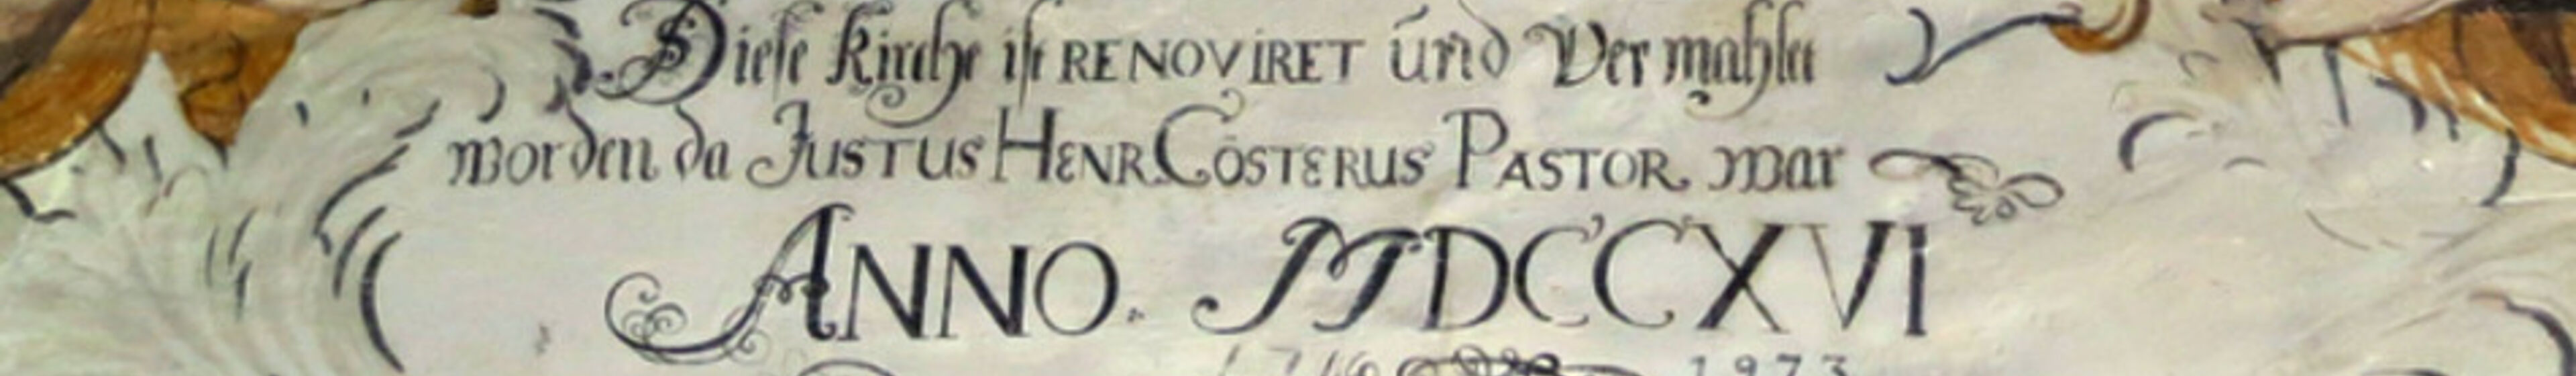 Diese Kirche ist RENOViRET und Vermahlet
worden da JUSTUS HENR. COSTERUS PASTOR war
ANNO. MDCCXVI
1716 1973